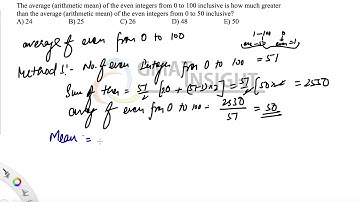 The average (arithmetic mean) of the even integers from 0 to 100 inclusive is how much greater
than the average (arithmetic mean) of the even integers from 0 to 50 inclusive?
A) 24 B) 25 C) 26 D) 48 E) 50
1-100 0
average of even from 0 to 100
Method 1:- No. of even Integer from 0 to 100 = 51
Sum of them = 51/2 [2×0 + (51-1)×2] = 51/2 [50×2] = 2550
average of even from 0 to 100 = 2550/51 = 50
Mean =
INSIGHT